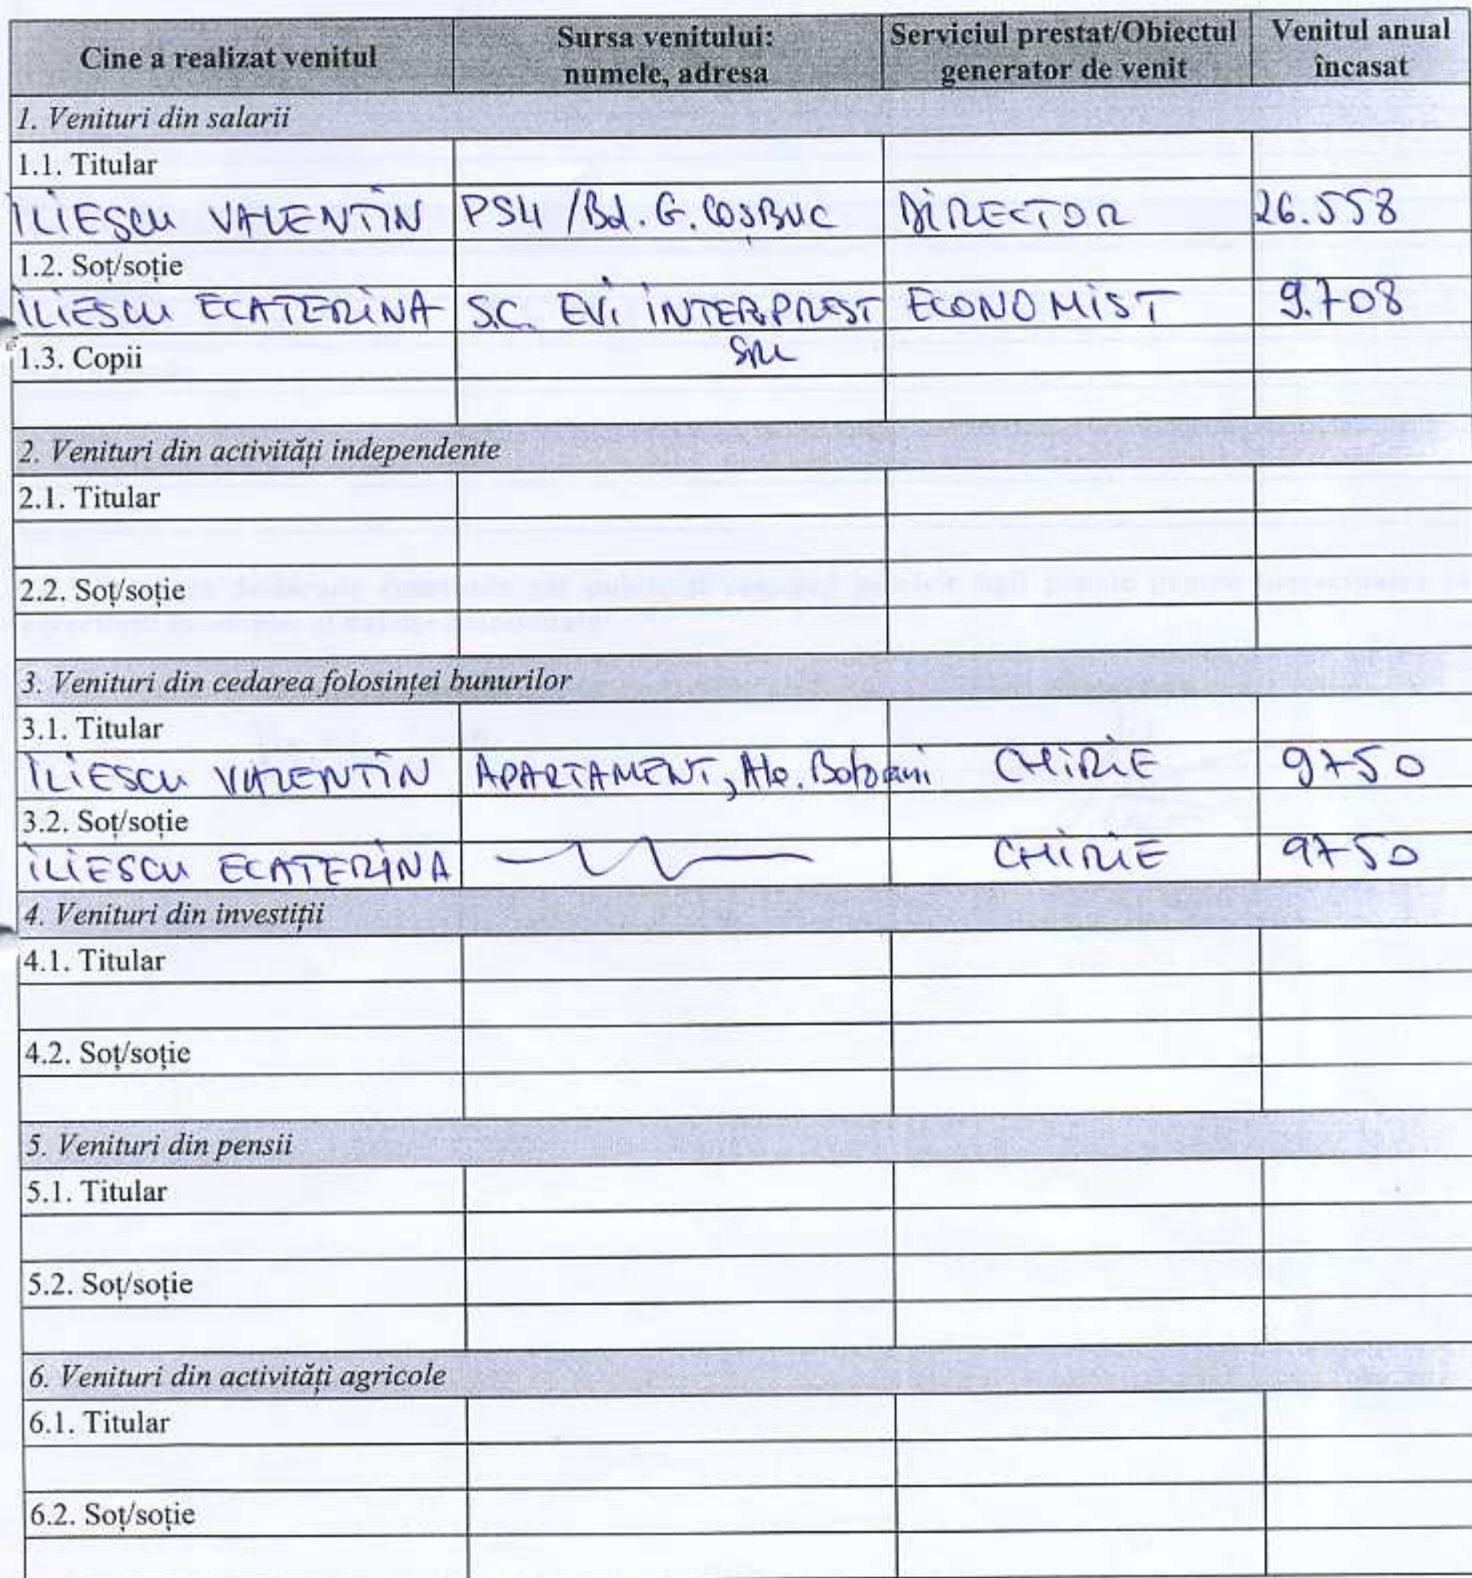 Cine a realizat venitul Sursa venitului: numele, adresa Serviciul prestat/Obiectul generator de venit Venitul anual încasat
1. Venituri din salarii
1.1. Titular
ILIESCU VALENTIN PS4 /Bd. G. COȘBUC DIRECTOR 26.558
1.2. Soț/soție
ILIESCU ECATERINA S.C. EVI INTERPREST SRL ECONOMIST 9.708
1.3. Copii
2. Venituri din activități independente
2.1. Titular
2.2. Soț/soție
3. Venituri din cedarea folosinței bunurilor
3.1. Titular
ILIESCU VALENTIN APARTAMENT, Botoșani CHIRIE 9750
3.2. Soț/soție
ILIESCU ECATERINA CHIRIE 9750
4. Venituri din investiții
4.1. Titular
4.2. Soț/soție
5. Venituri din pensii
5.1. Titular
5.2. Soț/soție
6. Venituri din activități agricole
6.1. Titular
6.2. Soț/soție